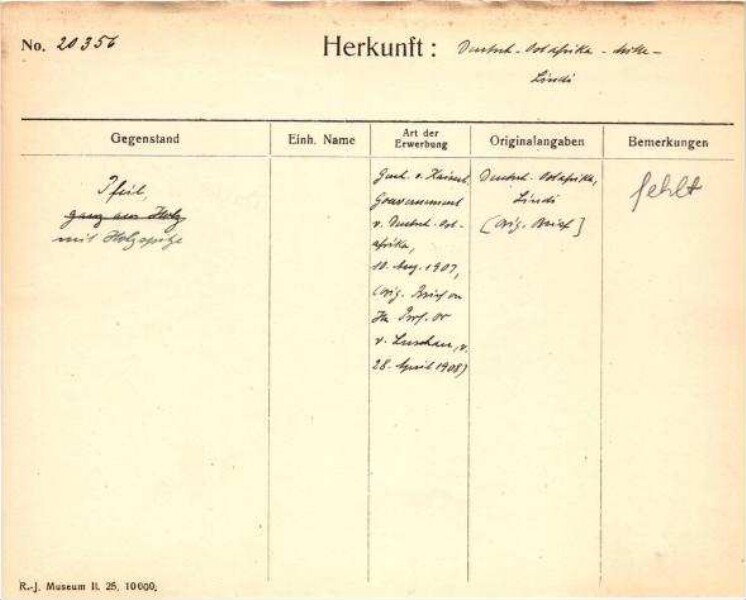 No. 20356
Herkunft: Deutsch-Ostafrika -
Lindi
Gegenstand
Einh. Name
Art der Erwerbung
Originalangaben
Bemerkungen
Pfeil,
ganz aus Holz
mit Holzspitze
v. Kaiserl.
Gouvernement
v. Deutsch-Ost-
afrika,
10. Aug. 1907,
(Orig. Brief an
Hn Prof. Dr
v. Luschan, v.
28. April 1908)
Deutsch-Ostafrika,
Lindi
[Orig. Brief]
fehlt
R.-J. Museum II. 25. 10000.